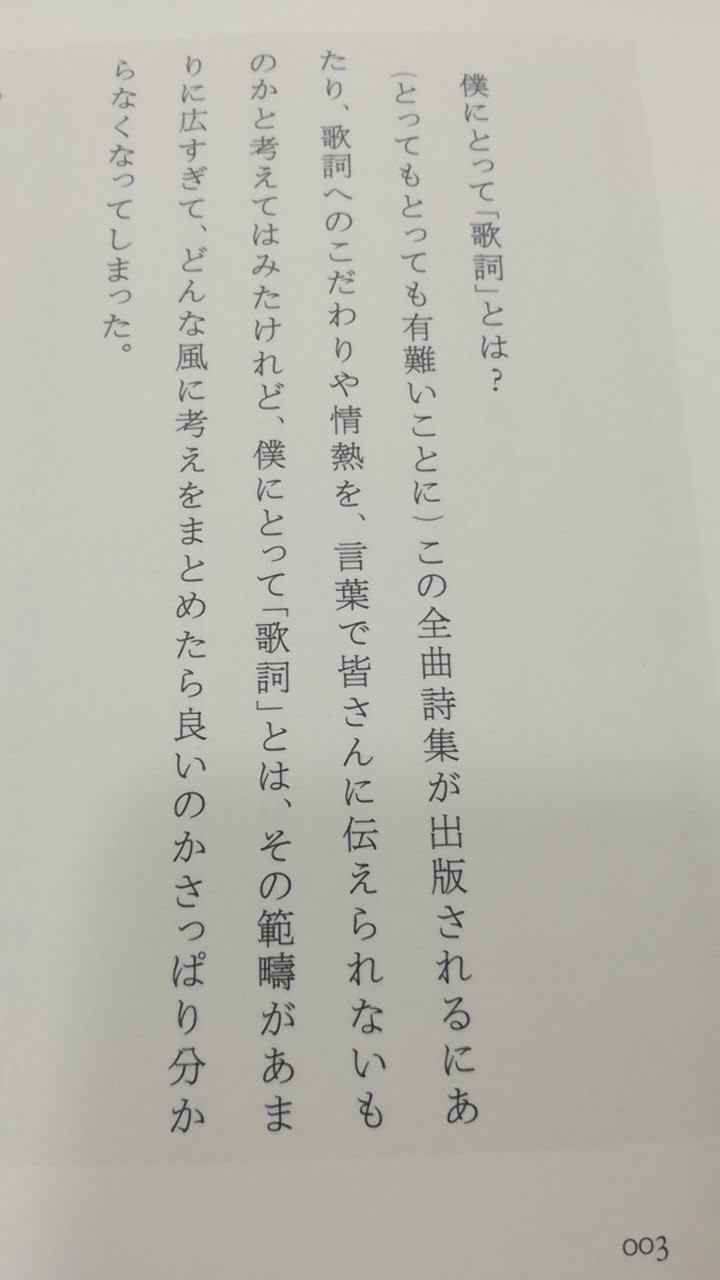 僕にとって「歌詞」とは?
(とってもとっても有難いことに)この全曲詩集が出版されるにあ
たり、歌詞へのこだわりや情熱を、言葉で皆さんに伝えられないも
のかと考えてはみたけれど、僕にとって「歌詞」とは、その範疇があま
りに広すぎて、どんな風に考えをまとめたら良いのかさっぱり分か
らなくなってしまった。
003